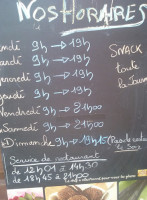 NOS HORAIRES
ndi 9h → 19h
ardi 9h → 19h
ercredi 9h → 19h
eudi 9h → 19h
Vendredi 9h → 21h00
Samedi 9h → 21h00
Dimanche 9h → 19h15
SNACK
toute
la Journ
le Soir
Service de restauration
de 12h01 à 14h30
de 18h45 à 21h00